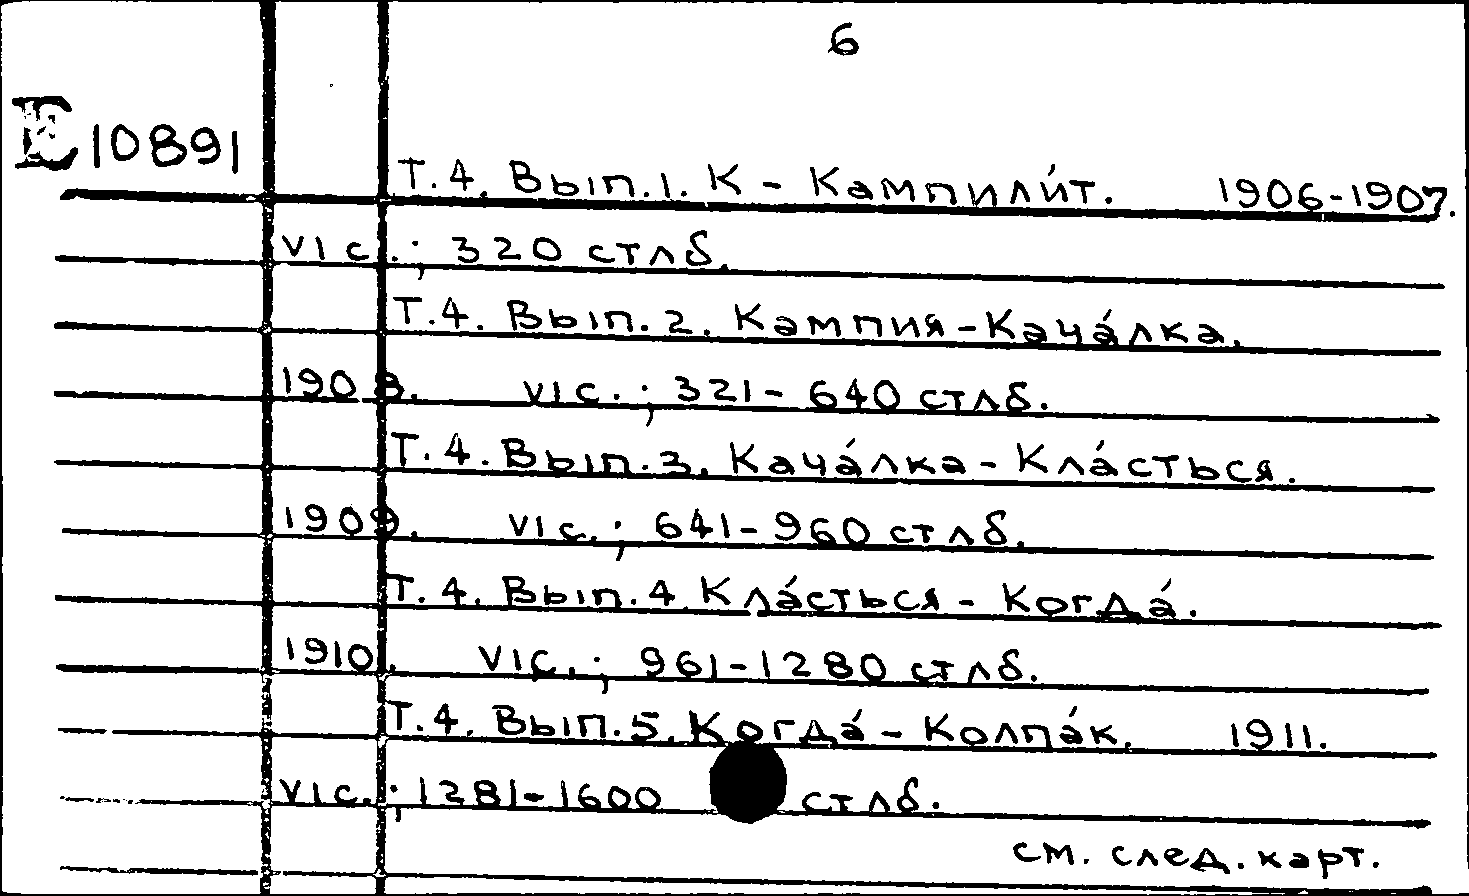 6
E10891
Т.4. Вып.1. К - Кампили́т. 1906-1907.
VI с.; 320 стлб.
Т.4. Вып.2. Кампия-Кача́лка.
1908. VI с.; 321-640 стлб.
Т.4. Вып.3. Кача́лка - Кла́сться.
1909. VI с.; 641-960 стлб.
Т.4. Вып.4. Кла́сться - Когда́.
1910. VI с.; 961-1280 стлб.
Т.4. Вып.5. Когда́ - Колпа́к. 1911.
VI с.; 1281-1600 стлб.
см. след. карт.